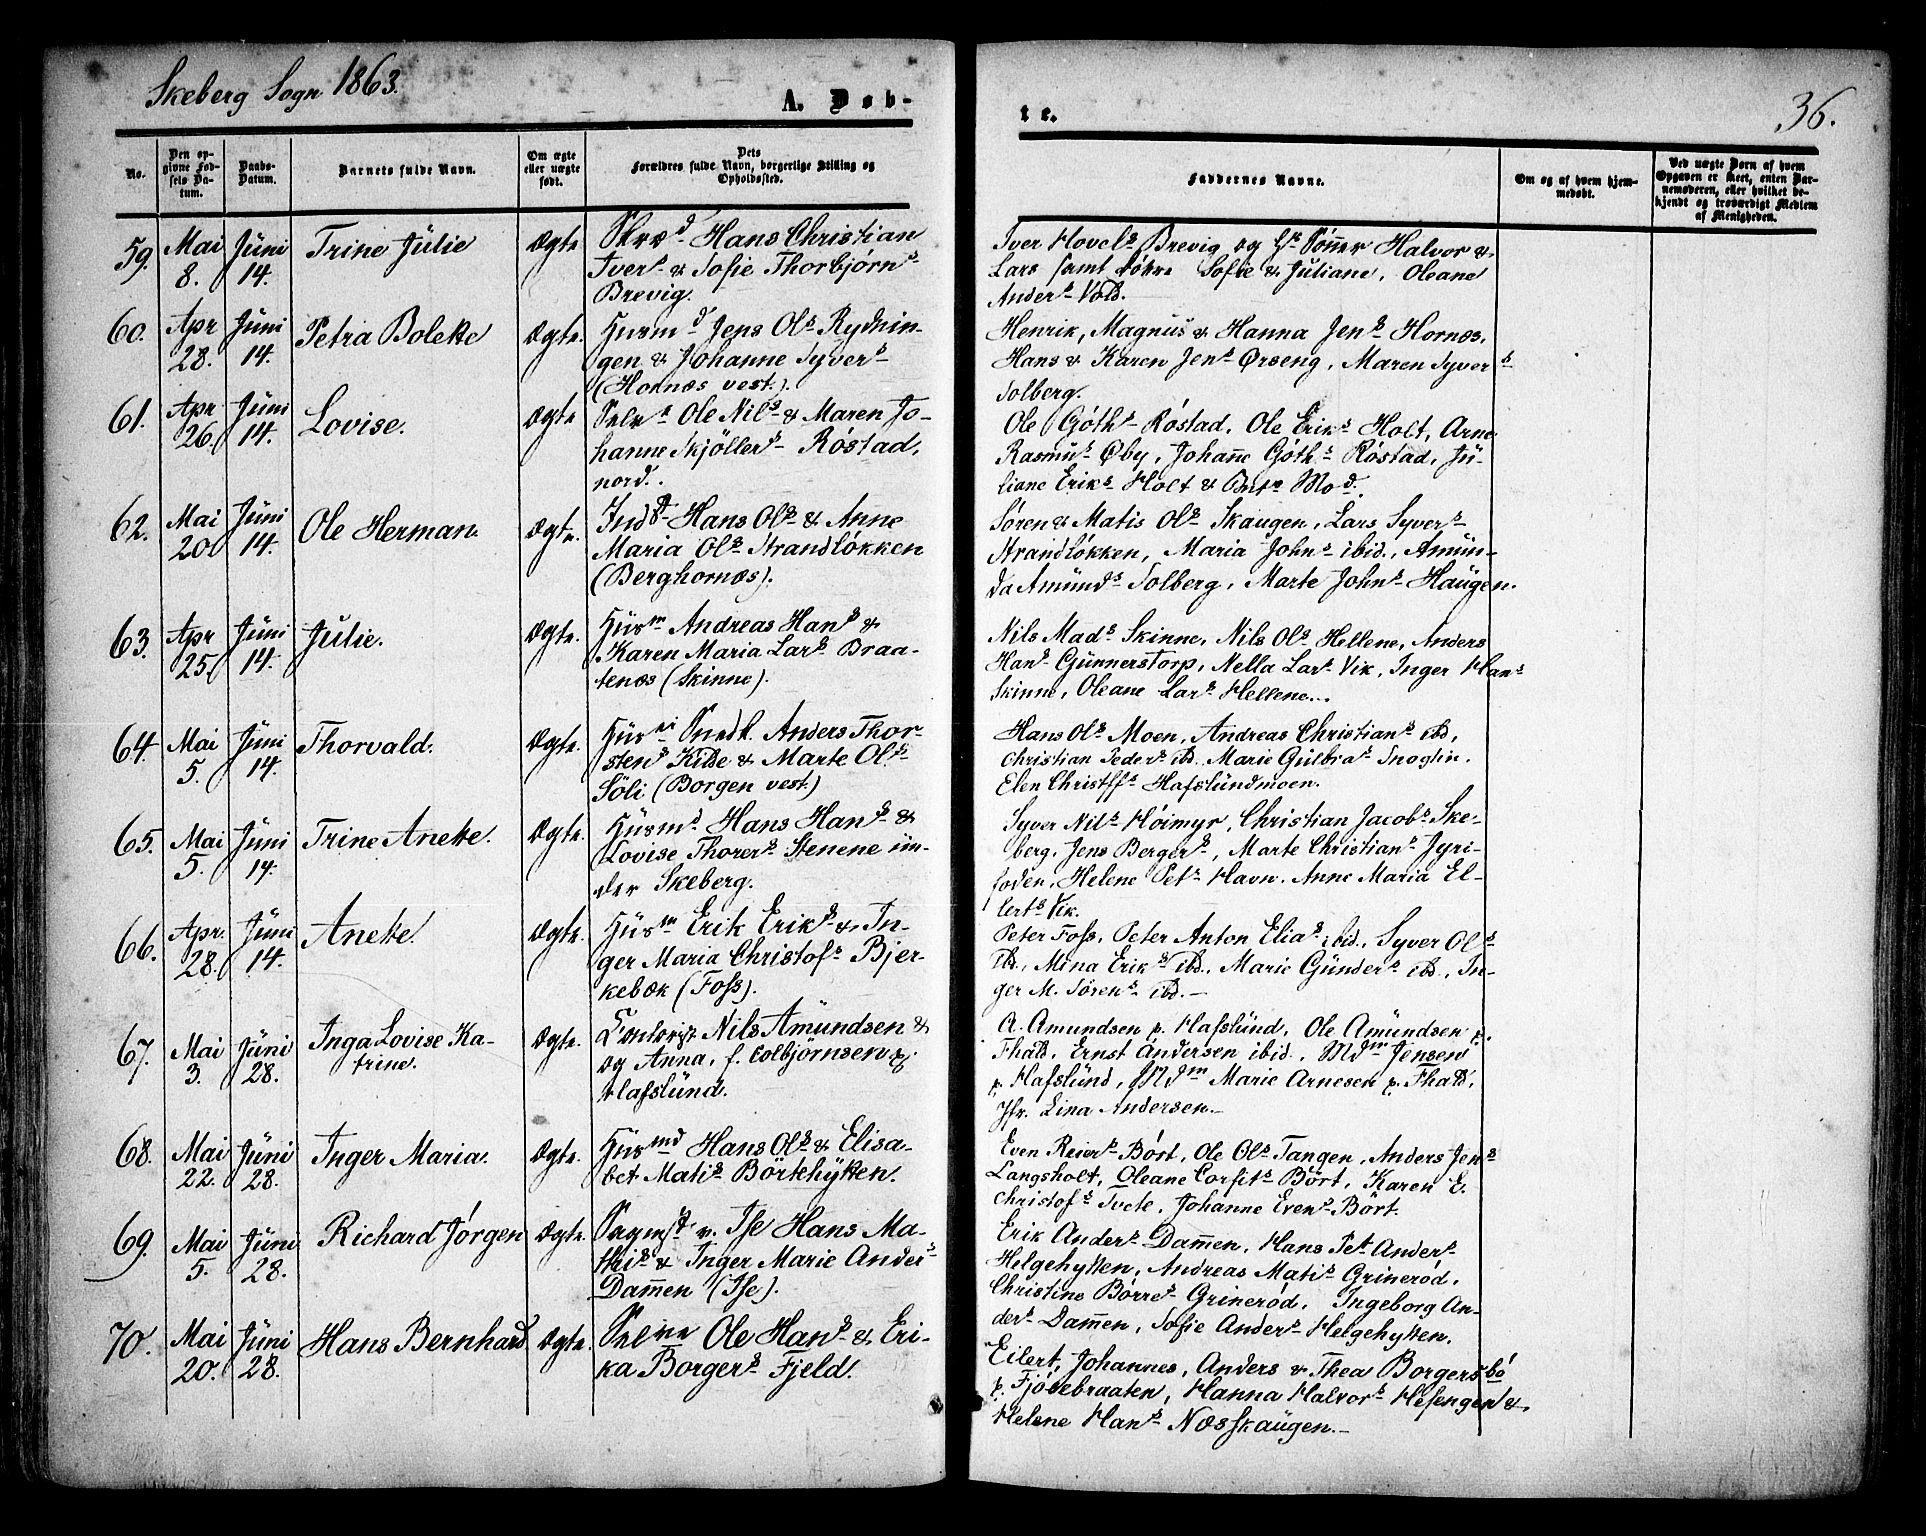 Skeberg Sogn 1863.
A. Døb-
te.
36.
No.
Den op-
givne Fød-
sels Da-
tum.
Daabs-
Datum.
Barnets fulde Navn.
Om ægte
eller uægte
født.
Dets
Forældres fulde Navn, borgerlige Stilling og
Opholdssted.
Faddernes Navne.
Om og af hvem hjem-
medøbt.
Ved uægte Børn af hvem
Opgaven er skeet, enten Bar-
nemoderen, eller hvilket be-
kjendt og troværdigt Medlem
af Menigheden.
59. Mai 8. Juni 14. Trine Julie Ægte
Hans Christian
Iver s & Sofie Thorbjørn s
Brevig.
Iver Hovel s Brevig og Sønner Halvor &
Lars samt Sofie & Juliane, Oleane
Ander s Vold.
60. Apr 28. Juni 14. Petra Bolette Ægte.
Husm d Jens Ol s Rydnin-
gen & Johanne Syver s
(Hornæs vest.)
Henrik, Magnus & Hanna Jen s Hornæs,
Hans & Karen Jen s Ørseng, Maren Syver s
Solberg.
61. Apr 26. Juni 14. Lovise. Ægte
Selv e Ole Nil s & Maren Jo-
hanne Skjöller s Röstad,
nord.
Ole Góth s Röstad, Ole Erik s Holt, Arne
Rasmu s Øby, Johanne Góth s Röstad, Ju-
liane Erik s Holt &
62. Mai 20 Juni 14. Ole Herman. Ægte.
Ind Hans Ol s & Anne
Maria Ol s Strandlökken
(Berghornæs).
Søren & Matis Ol s Skaugen, Lars Syver s
Strandlökken, Maria John s ibid., Amun-
da Amund s Solberg, Marte John s Haugen.
63. Apr 25. Juni 14. Julie. Ægte.
Husm Andreas Han s &
Karen Maria Lar s Braa-
tenæs (Skinne).
Nils Mad s Skinne, Nils Ol s Hellene, Anders
Han s Gunnerstorp, Nella Lar s Vik, Inger Han s
Skinne, Oleane Lar s Hellene.
64. Mai 5. Juni 14. Thorvald. Ægte.
Hus Snedk. Anders Thor-
sten s Kilde & Marte Ol s
Söli (Borgen vest.)
Hans Ol s Moen, Andreas Christian s ibd,
Christian Peder s ibd. Marie Gulbra s Snoglin,
Elen Christff s Hafslundmoen.
65. Mai 5. Juni 14. Trine Anette. Ægte.
Husm d. Hans Han s &
Lovise Thorer s Stenene un-
der Skeberg.
Syver Nil s Höimyr, Christian Jacob s Ske-
berg, Jens Berger s, Marte Christian s Jyri-
foden, Helene Pet s Havn, Anne Maria El-
lert s Vik.
66. Apr. 28. Juni 14. Anette. Ægte.
Husm Erik Erik s & In-
ger Maria Christof s Bjer-
kebæk (Foss).
Peter Foss, Peter Anton Elia s ibid., Syver Ol s
ibd., Mina Erik s ibd., Marie Gunder s ibd., In-
ger M. Sören s ibd.-
67. Mai 3. Juni 28. Inga Lovise Ka-
trine. Ægte.
Contorist Nils Amundsen &
og Anna, f. Colbjörnsen p.
Hafslund.
A. Amundsen p. Hafslund, Ole Amundsen p.
Fhald, Ernst Andersen ibid., Md m Jensen
p. Hafslund, Md m Marie Arnesen p. Fhald,
Jfr. Lina Andersen.-
68. Mai 22. Juni 28. Inger Maria. Ægte.
Husmd Hans Ol s & Elisa-
bet Mati s Börtehytten.
Even Reier s Bört, Ole Ol s Tangen, Anders Jen s
Langsholt, Oleane Corfit s Bört, Karen E.
Christof s Tvete, Johanne Even s Bört.
69. Mai 5. Juni 28. Richard Jörgen Ægte.
v. Ise Hans Ma-
thi s & Inger Marie Ander s
Dammen (Ise).
Erik Ander s Dammen, Hans Pet. Ander s
Helgehytten, Andreas Mati s Grineröd,
Christine Börre s Grineröd, Ingeborg An-
der s Dammen, Sofie Ander s Helgehytten.
70. Mai 20. Juni 28. Hans Bernhard Ægte.
Ole Han s & Eri-
ka Borger s Fjeld.
Eilert, Johannes, Anders & Thea Borgers bö
p. Fjösebraaten, Hanna Halvor s Hesengen &
Helene Han s Næsskaugen.-